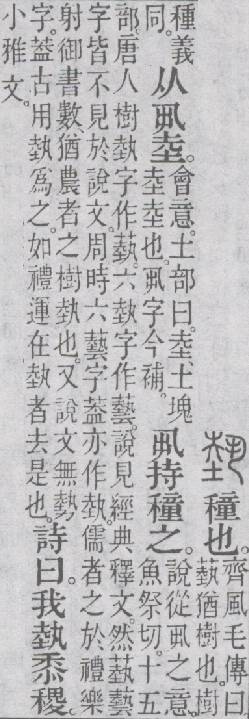 穜也。
齊風毛傳曰
蓺猶樹也。樹
種義
同。
从丮坴。
會意。土部曰。坴土塊
坴坴也。丮字今補。
丮持穜之。
說從丮之意。
魚祭切。十五
部。唐人樹埶字作蓺。六埶字作藝。說見經典釋文。然蓺藝
字皆不見於說文。周時六藝字葢亦作埶。儒者之於禮樂
射御書數。猶農者之樹埶也。又說文無勢
字。葢古用埶爲之。如禮運在埶者去是也。
詩曰。我埶黍稷。
小雅文。